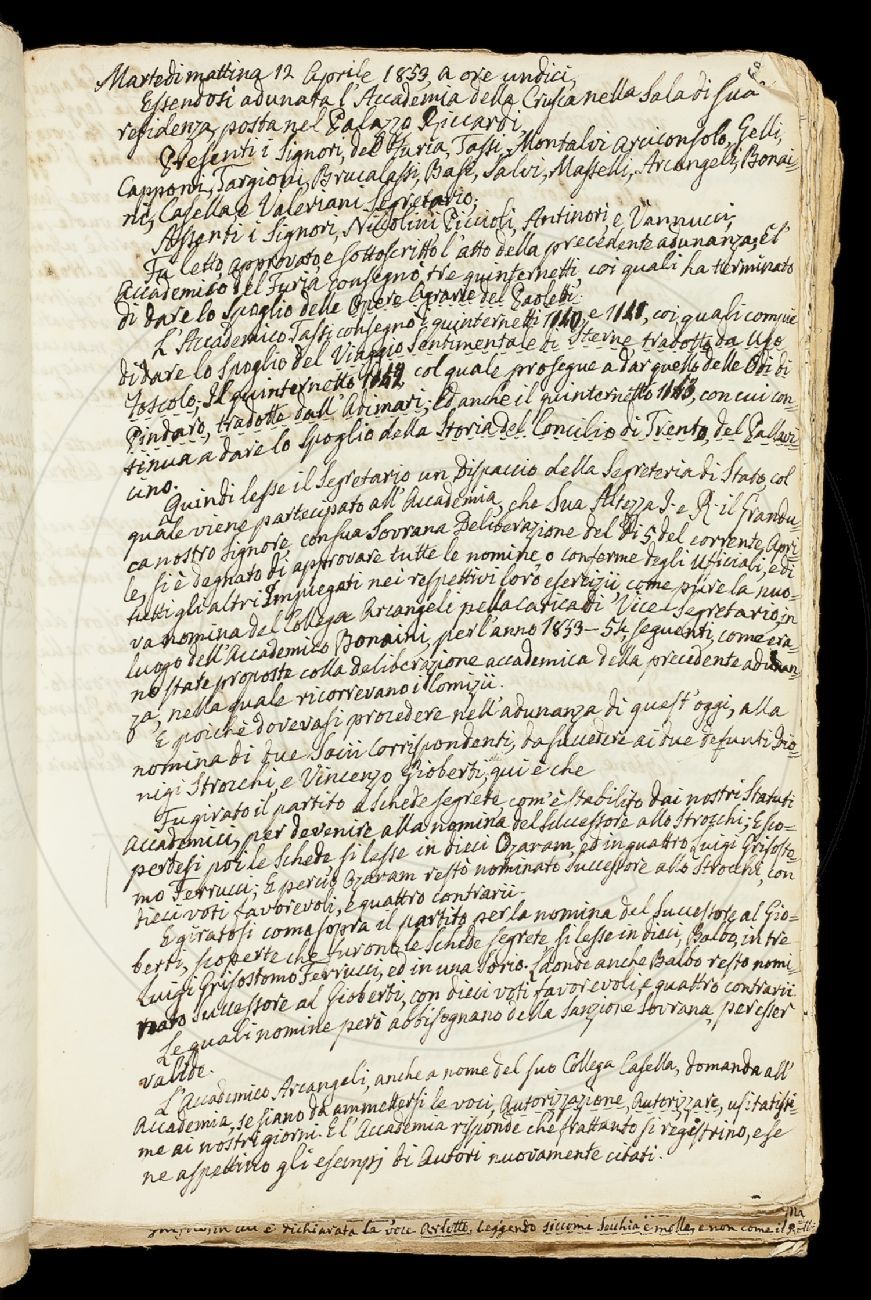 Martedì mattina 12 Aprile 1853, a ore undici,
Essendosi adunata l'Accademia della Crusca nella Sala di sua
residenza, posta nel Palazzo Riccardi,
Presenti i Signori, del Furia, Tassi, Montalvi Arciconsolo, Gelli,
Capponi, Targioni, Brucalassi, Basi, Salvi, Masselli, Arcangeli, Bonai-
ni, Casella, e Valeriani Segretario;
Assenti i Signori, Niccolini, Piccioli, Antinori e Vannucci;
Fu letto, approvato e sottoscritto l'atto della precedente adunanza; E l'
Accademico del Furia consegnò tre quinternetti, coi quali ha terminato
di dare lo Spoglio delle Opere Agrarie del Paoletti.
L'Accademico Tassi consegnò i quinternetti 1140, e 1141, coi quali compie
di dare lo Spoglio del Viaggio Sentimentale di Sterne, tradotto da Ugo
Foscolo; Il quinternetto 1142, col quale prosegue a dar quello delle Odi di
Pindaro, tradotte dall'Adimari; Ed anche il quinternetto 1143, con cui con-
tinua a dare lo Spoglio della Storia del Concilio di Trento, del Pallavi-
cino.
Quindi lesse il Segretario un Dispaccio della Segreteria di Stato, col
quale viene partecipato all'Accademia, che Sua Altezza I. e R. il Grandu-
ca nostro Signore, con sua Sovrana Deliberazione del dì 5 del corrente Apri-
le, si è degnato di approvare tutte le nomine, o conferme degli Ufficiali, e di
tutti gli altri Impiegati nei respettivi loro esercizii, come pure la nuo-
va nomina del Collega Arcangeli nella carica di Vice-Segretario, in
luogo dell'Accademico Bonaini, per l'anno 1853-54, seguenti, come era-
no state proposte colla deliberazione accademica della precedente adunan-
za, nella quale ricorrevano i Comizii.
E poichè dovevasi procedere nell'adunanza di quest'oggi, alla
nomina di due Socii Corrispondenti, da succedere ai due defunti Dio-
nigi Strocchi, e Vincenzo Gioberti, qui è che
Fu girato il partito a Schede segrete, com'è stabilito dai nostri Statuti
Accademici, per devenire alla nomina del Successore allo Strocchi; E sco-
pertesi poi le Schede, si lesse in dieci Ozaram, ed in quattro Luigi Grisosto-
mo Ferrucci; E perciò Ozaram restò nominato Successore allo Strocchi, con
dieci voti favorevoli, e quattro contrarii.
E giratosi come sopra il partito per la nomina del Successore al Gio-
berti, scoperte che furono le Schede segrete, si lesse in dieci, Balbo, in tre
Luigi Grisostomo Ferrucci, ed in una Sorio. Laonde anche Balbo restò nomi-
nato Successore al Gioberti, con dieci voti favorevoli, e quattro contrarii.
Le quali nomine però abbisognano della Sanzione Sovrana, per esser
valide.
L'Accademico Arcangeli, anche a nome del suo Collega Casella, domanda all'
Accademia, se siano da ammettersi le voci, Autorizzazione, Autorizzare, usitatissi-
me ai nostri giorni. E l'Accademia risponde che frattanto si registrino, e se
ne aspettino gli esempj di Autori nuovamente citati.
in cui è dichiarata la voce Arlotto, leggendo siccome Secchia e molle, e non come il